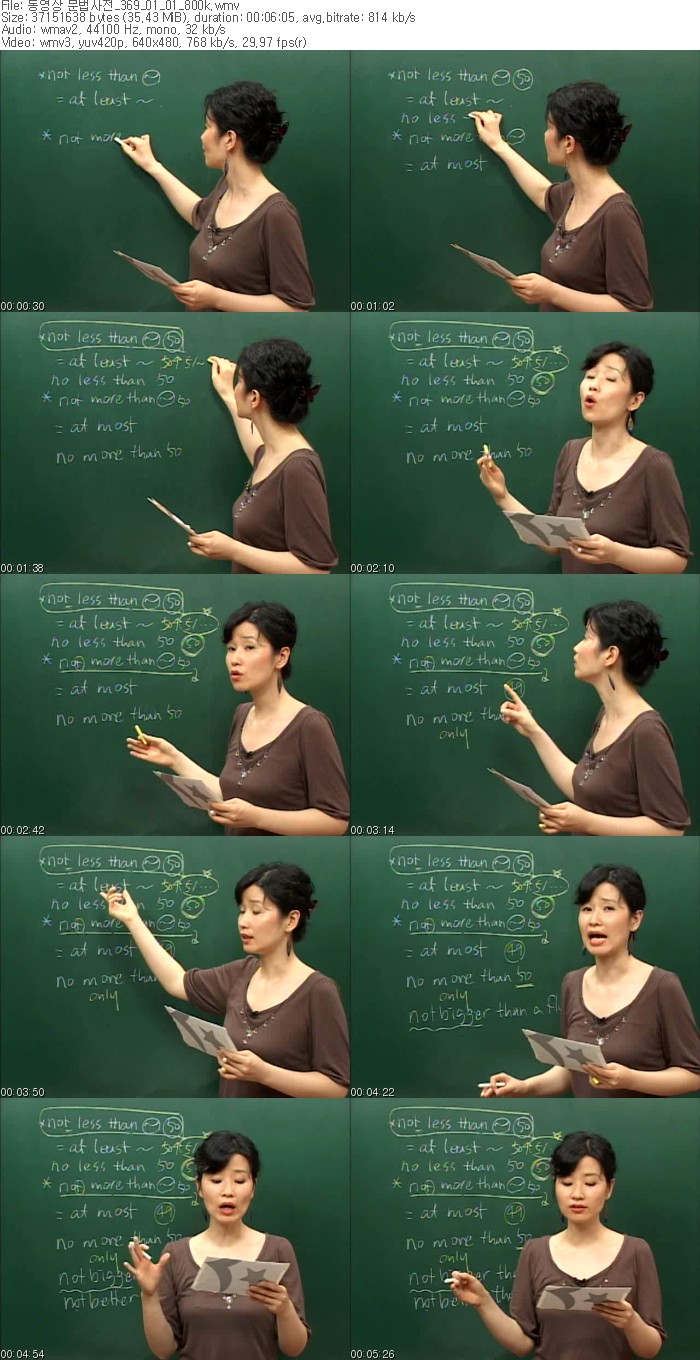 File: 동영상 문법사전_369_01_01_800k.wmv
Size: 37151638 bytes (35.43 MiB), duration: 00:06:05, avg.bitrate: 814 kb/s
Audio: wmav2, 44100 Hz, mono, 32 kb/s
Video: wmv3, yuv420p, 640x480, 768 kb/s, 29.97 fps(r)
*not less than ~
= at least ~
* not more
00:00:30
*not less than ~ 50
= at least ~
no less
* not more ~
= at most
00:01:02
*not less than ~ 50
= at least ~ 50↑ 51~
no less than 50
* not more than ~ 50
= at most
no more than 50
00:01:38
*not less than ~ 50
= at least ~ 50↑ 51...
no less than 50 50
* not more than ~ 50
= at most
no more than 50
00:02:10
*not less than ~ 50
= at least ~ 50↑ 51...
no less than 50 50
* not more than ~ 50
= at most
no more than 50
00:02:42
*not less than ~ 50
= at least ~ 50↑ 51...
no less than 50 50
* not more than ~ 50
= at most 49
no more tha
only
00:03:14
*not less than ~ 50
= at least ~ 50↑ 51...
no les than 50 50
* not more than ~ 50
= at most 49
no more than
only
00:03:50
*not less than ~ 50
= at least ~ 50↑ 51...
no less than 50 50
* not more than ~ 50
= at most 49
no more than 50
only
not bigger than a fl
00:04:22
*not less than ~ 50
= at least ~ 50↑
no less than 50
* not more than ~ 50
= at most 49
no more than 50
only
not bigge
not better
00:04:54
*not less than ~ 50
= at least ~ 50↑
no less than 50
* not more than ~ 50
= at most 49
no more than 50
only
not b th
not be
00:05:26